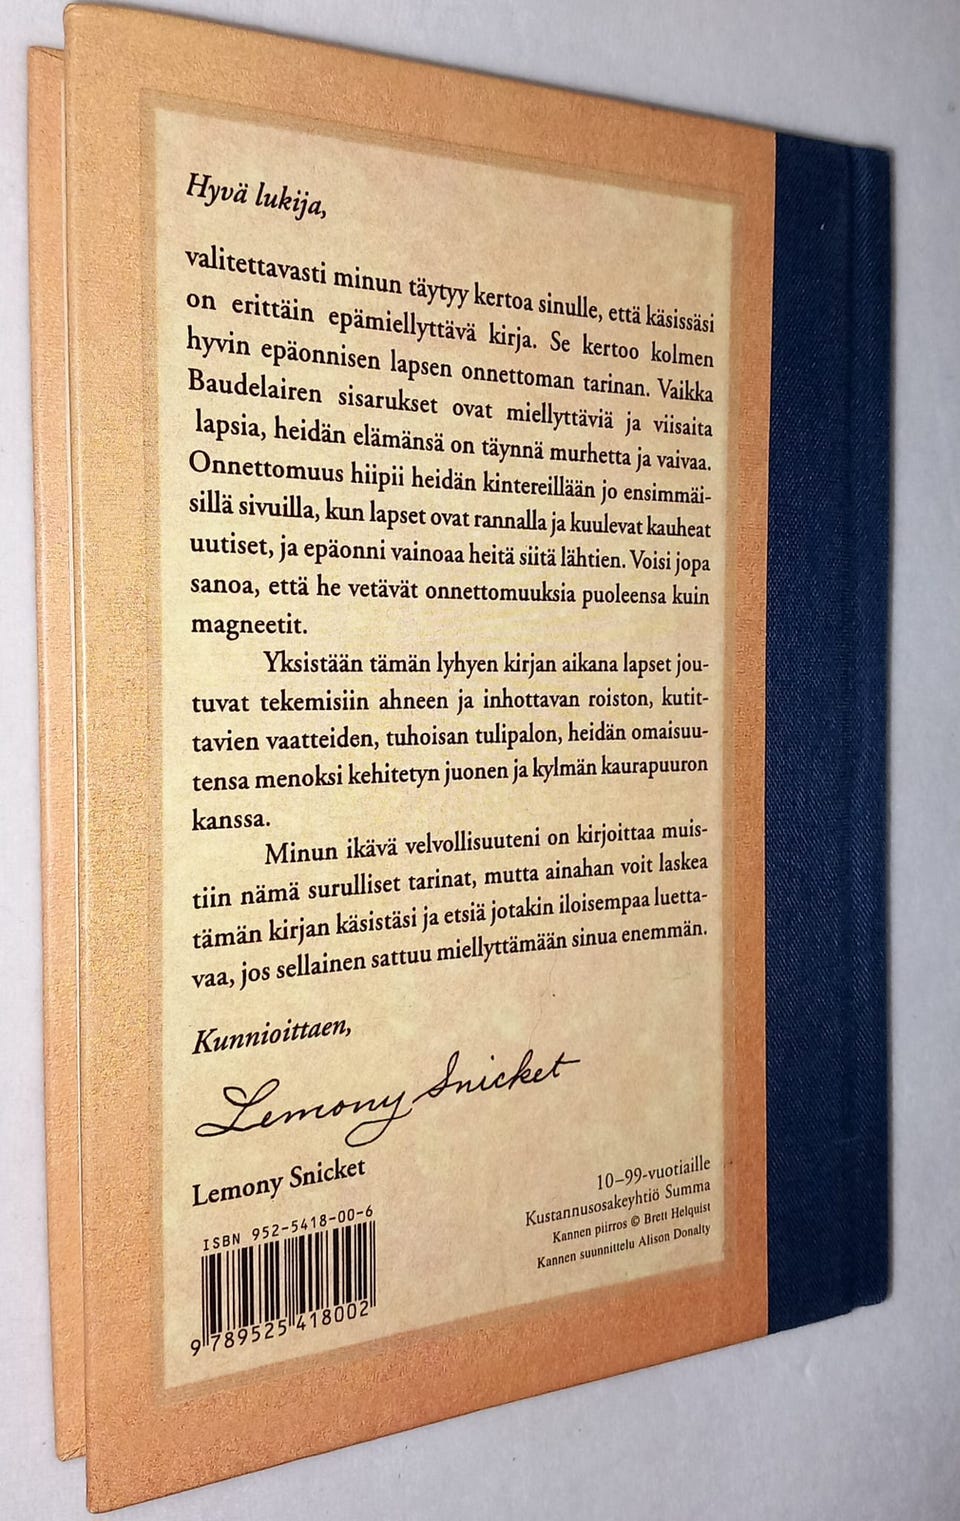 Hyvä lukija,
valitettavasti minun täytyy kertoa sinulle, että käsissäsi
on erittäin epämiellyttävä kirja. Se kertoo kolmen
hyvin epäonnisen lapsen onnettoman tarinan. Vaikka
Baudelairen sisarukset ovat miellyttäviä ja viisaita
lapsia, heidän elämänsä on täynnä murhetta ja vaivaa.
Onnettomuus hiipii heidän kintereillään jo ensimmäi-
sillä sivuilla, kun lapset ovat rannalla ja kuulevat kauheat
uutiset, ja epäonni vainoaa heitä siitä lähtien. Voisi jopa
sanoa, että he vetävät onnettomuuksia puoleensa kuin
magneetit.
Yksistään tämän lyhyen kirjan aikana lapset jou-
tuvat tekemisiin ahneen ja inhottavan roiston, kutit-
tavien vaatteiden, tuhoisan tulipalon, heidän omaisuu-
tensa menoksi kehitetyn juonen ja kylmän kaurapuuron
kanssa.
Minun ikävä velvollisuuteni on kirjoittaa muis-
tiin nämä surulliset tarinat, mutta ainahan voit laskea
tämän kirjan käsistäsi ja etsiä jotakin iloisempaa luetta-
vaa, jos sellainen sattuu miellyttämään sinua enemmän.
Kunnioittaen,
Lemony Snicket
Lemony Snicket
ISBN 952-5418-00-6
9 789525 418002
10–99-vuotiaille
Kustannusosakeyhtiö Summa
Kannen piirros © Brett Helquist
Kannen suunnittelu Alison Donalty